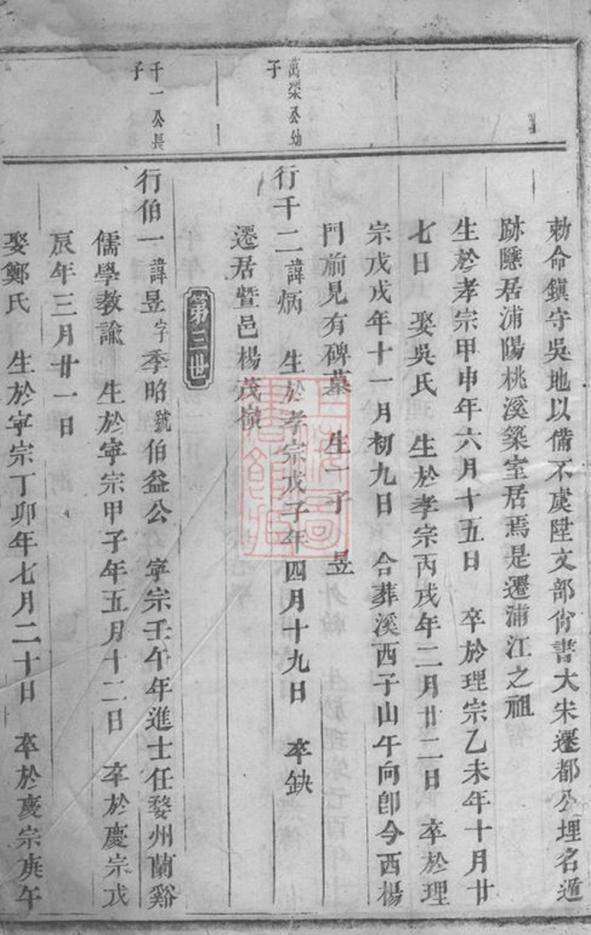 勅命鎮守吳地以備不虞陞文部尙書大宋遷都公埋名遁
跡隱居浦陽桃溪築室居焉是遷浦江之祖
生於孝宗甲申年六月十五日 卒於理宗乙未年十月廿
七日 娶吳氏 生於孝宗丙戌年二月廿二日 卒於理
宗戊戌年十一月初九日 合葬溪西子山午向卽今西楊
門前見有碑墓 生一子 昱
萬榮公幼
子
行千二諱炳 生於孝宗戊子年四月十九日 卒缺
遷居暨邑楊茂嶺
第三世
千一公長
子
行伯一諱昱字季昭號伯益公 寧宗壬午年進士任婺州蘭谿
儒學教諭 生於寧宗甲子年五月十二日 卒於慶宗戊
辰年三月廿一日
娶鄭氏 生於寧宗丁卯年七月二十日 卒於慶宗庚午